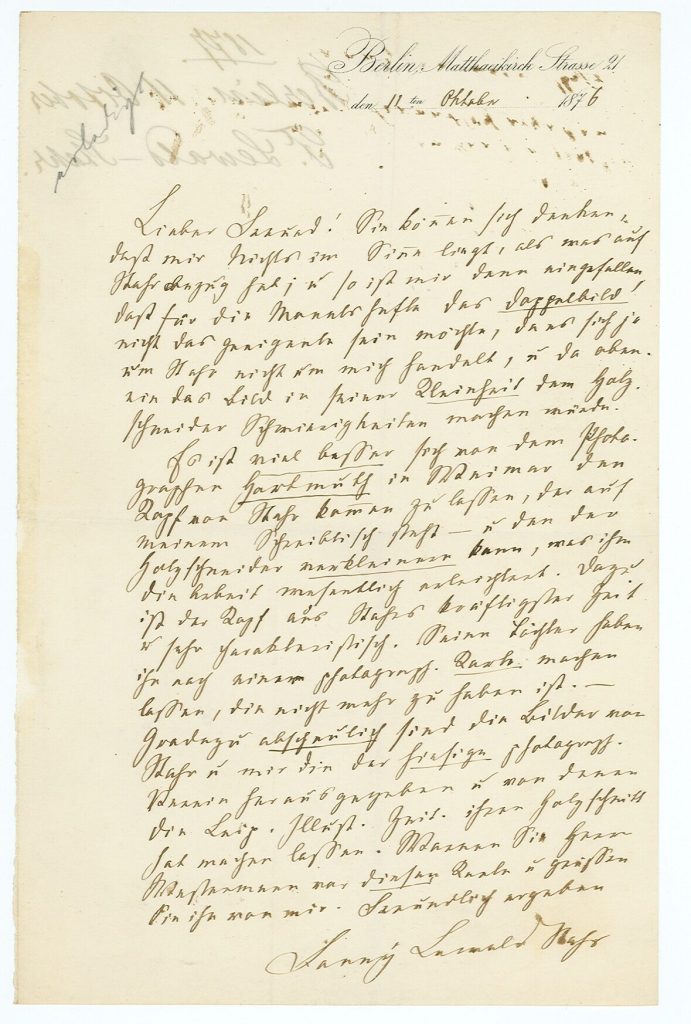 Berlin, Matthaeikirch Strasse 21
den 11 ten Oktober 1876
erledigt
Lieber Freund! Sie können sich denken,
daß mir Nichts im Sinne liegt, als was auf
Stahr Bezug hat; u so ist mir denn eingefallen,
daß für die Monatshefte das Doppelbild
nicht das geeignete sein möchte, da es sich ja
um Stahr nicht um mich handelt, u da oben-
ein das Bild in seiner Kleinheit dem Holz-
schneider Schwierigkeiten machen würde.
Es ist viel besser sich von dem Photo-
graphen Hartmuth in Weimar den
Kopf von Stahr komen zu lassen, der auf
meinem Schreibtisch steht — u den der
Holzschneider verkleinern kann, was ihm
die Arbeit wesentlich erleichtert. Dazu
ist der Kopf aus Stahrs kräftigster Zeit
u sehr charakteristisch. Seine Töchter haben
ihn nach einer photograph. Karte machen
lassen, die nicht mehr zu haben ist. —
Gradezu abscheulich sind die Bilder von
Stahr u mir die der hiesige photograph.
Verein herausgegeben u von denen
die Leip. Illust. Zeit. ihren Holzschnitt
hat machen lassen. Warnen Sie Herrn
Westermann vor diesen u grüssen
Sie ihn von mir. Freundlich ergeben
Fanny Lewald Stahr